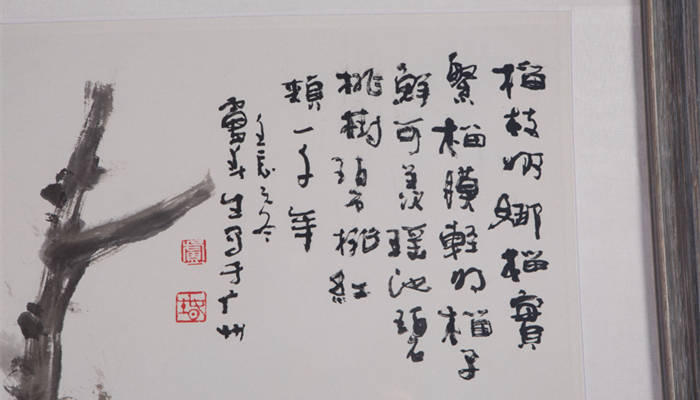 榴枝婀娜榴實
繁榴膜輕明榴子
鮮可羨瑤池碧
桃樹碧桃紅
頰一千年
壬辰之冬
生写于广州